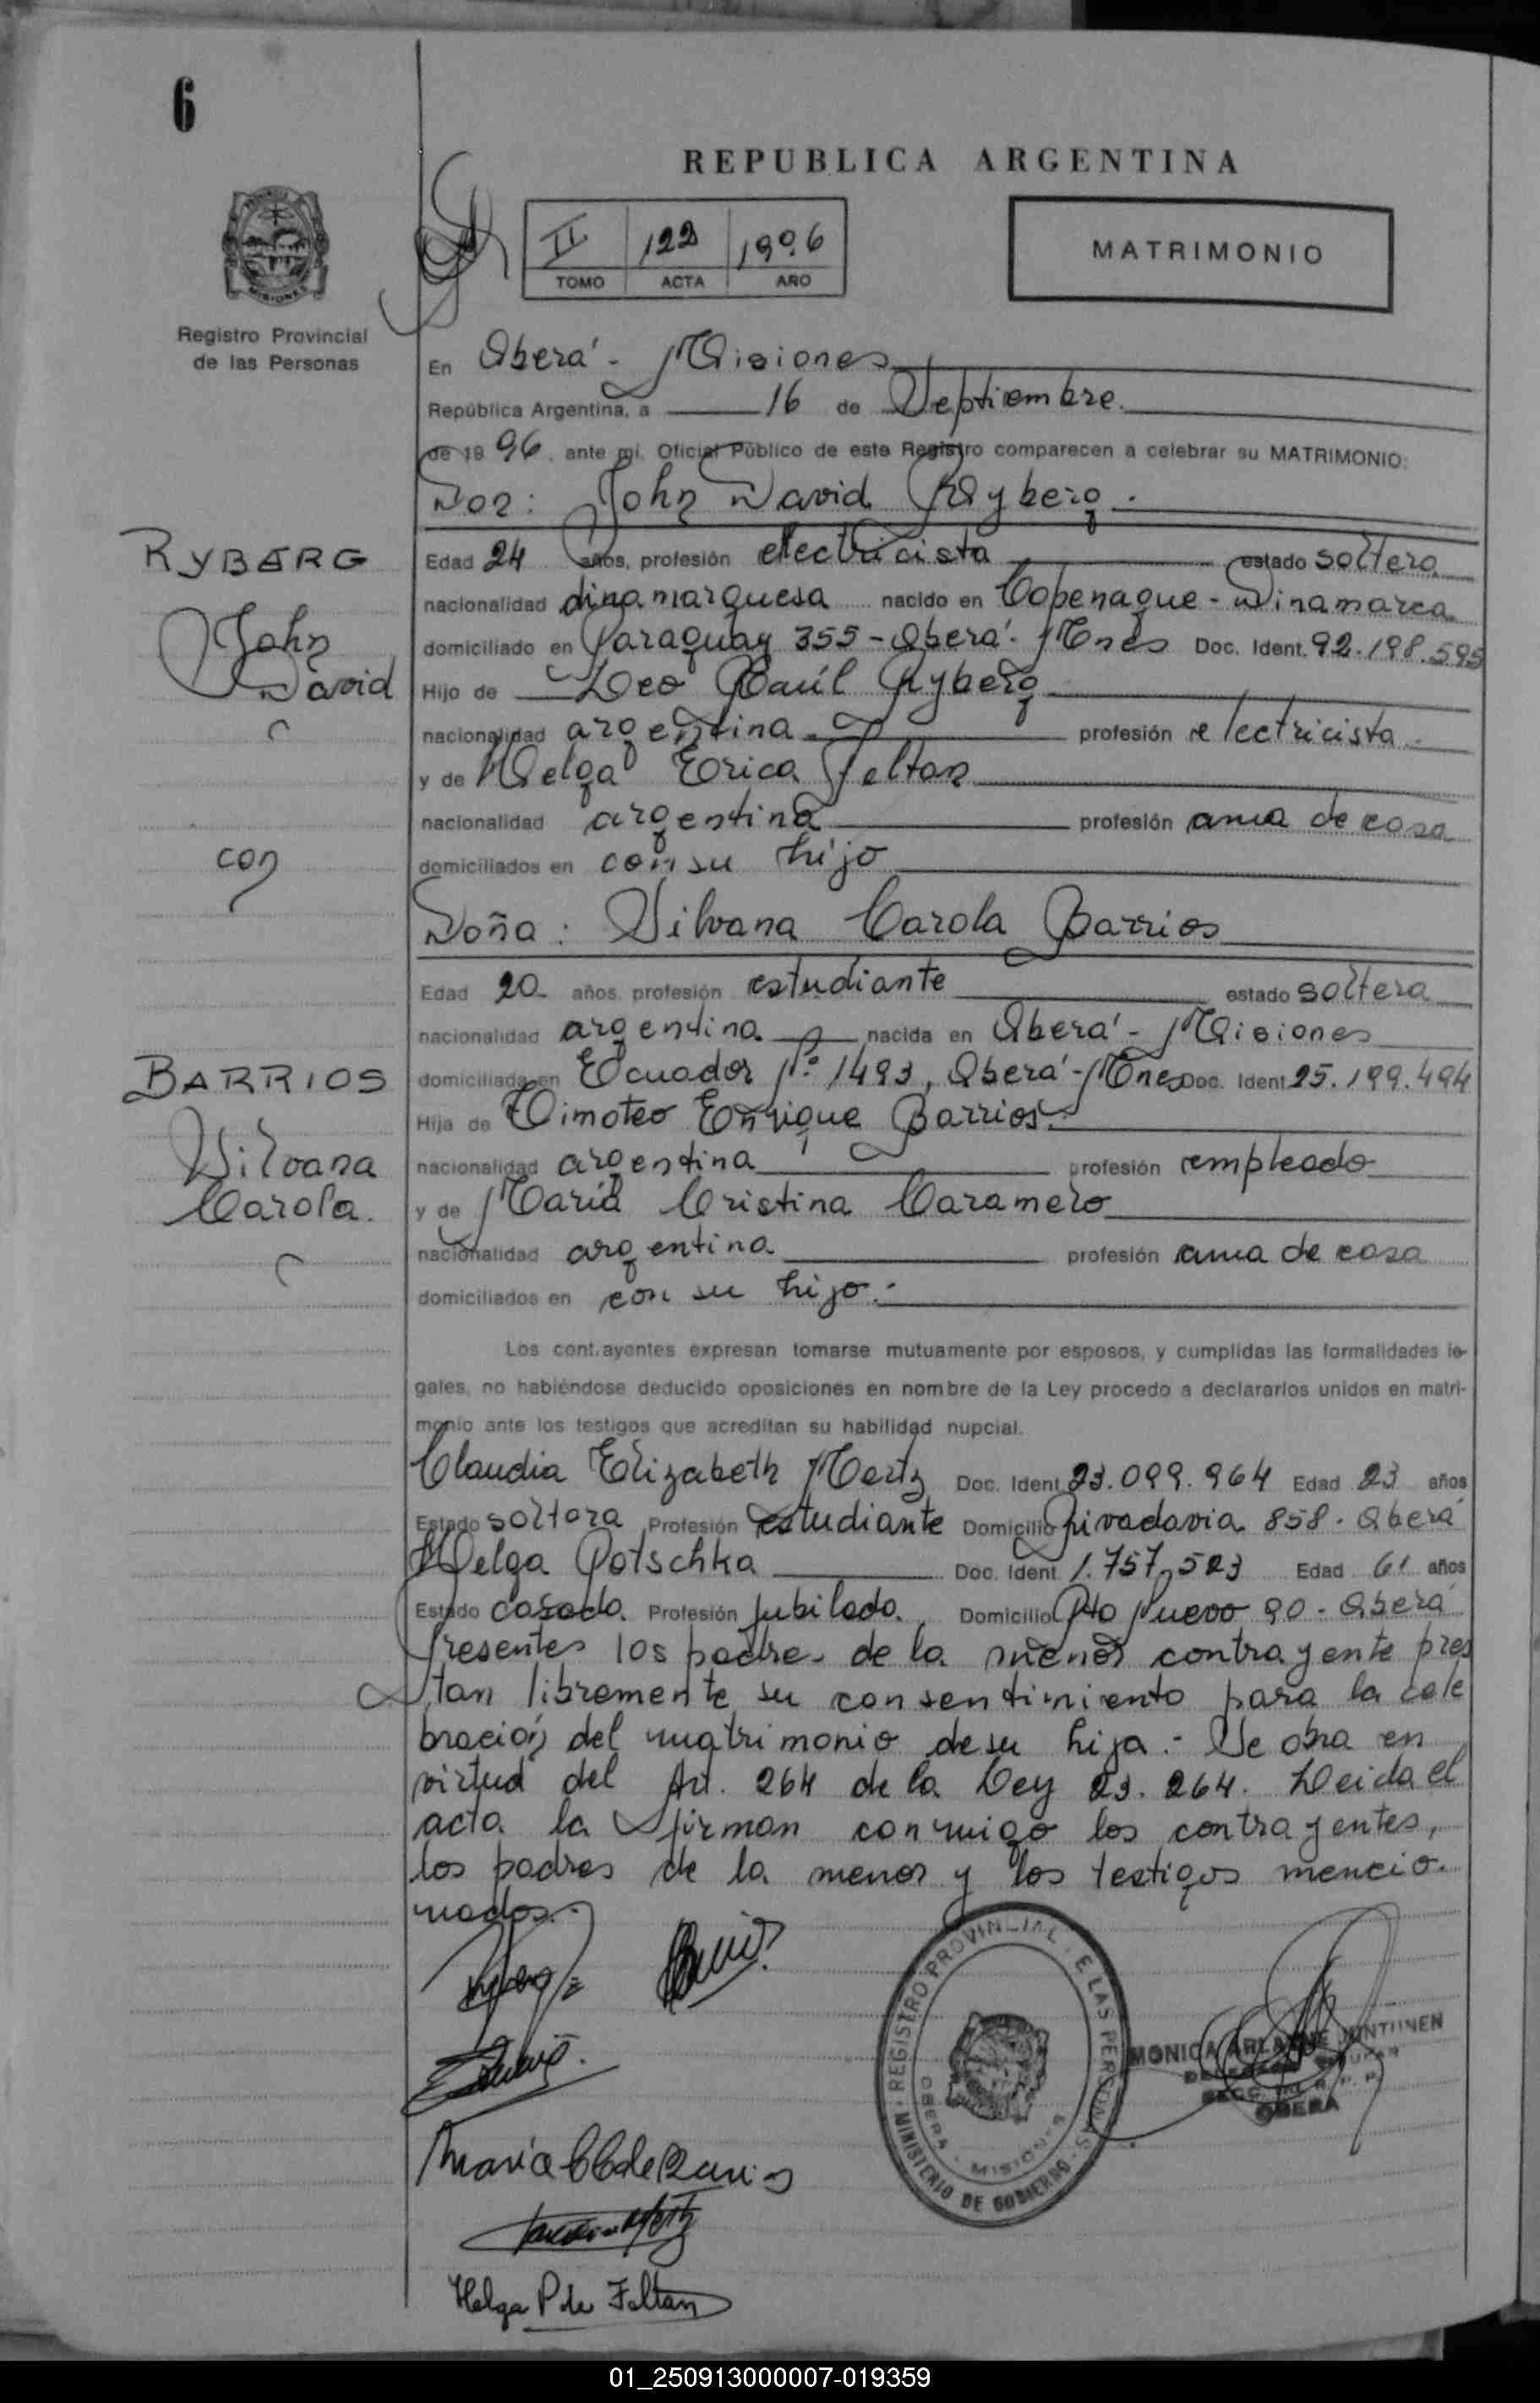 6
REPUBLICA ARGENTINA
II 122 1996
TOMO ACTA AÑO
MATRIMONIO
MISIONES
Registro Provincial
de las Personas
En Oberá - Misiones
República Argentina, a 16 de Septiembre.
de 1996, ante mí, Oficial Público de este Registro comparecen a celebrar su MATRIMONIO:
Don: John David Ryberg.
RYBERG
John
David
Edad 24 años, profesión electricista estado soltero
nacionalidad dinamarquesa nacido en Copenague - Dinamarca
domiciliado en Paraguay 355 - Oberá - Mnes Doc. Ident. 92.198.595
Hijo de Leo Raúl Ryberg
nacionalidad argentina profesión electricista
y de Helga Erica Feltan
nacionalidad argentina profesión ama de casa
domiciliados en con su hijo
con
Doña: Silvana Carola Barrios
Edad 20 años, profesión estudiante estado soltera
nacionalidad argentina nacida en Oberá - Misiones
BARRIOS
Silvana
Carola.
domiciliada en Ecuador Nº 1493, Oberá - Mnes Doc. Ident. 25.199.494
Hija de Timoteo Enrique Barrios
nacionalidad argentina profesión empleado
y de María Cristina Caramelo
nacionalidad argentina profesión ama de casa
domiciliados en con su hijo.-
Los contrayentes expresan tomarse mutuamente por esposos, y cumplidas las formalidades le-
gales, no habiéndose deducido oposiciones en nombre de la Ley procedo a declararlos unidos en matri-
monio ante los testigos que acreditan su habilidad nupcial.
Claudia Elizabeth Mertz Doc. Ident. 23.099.964 Edad 23 años
Estado soltera Profesión estudiante Domicilio Rivadavia 858 - Oberá
Helga Potschka Doc. Ident. 1.757.523 Edad 61 años
Estado casada Profesión jubilada Domicilio Pto Nuevo 90 - Oberá
Presentes los padres de la menor contrayente pres
tan libremente su consentimiento para la cele
bración del matrimonio de su hija.- Se obra en
virtud del Art. 264 de la Ley 23.264. Leida el
acta la firman conmigo los contrayentes,
los padres de la menor y los testigos mencio-
nados.-
REGISTRO PROVINCIAL DE LAS PERSONAS
MINISTERIO DE GOBIERNO
OBERA - MISIONES
MONICA ARLAINE JUNTUNEN
OBERA
María C C de Barrios
Helga P de Feltan
01_250913000007-019359